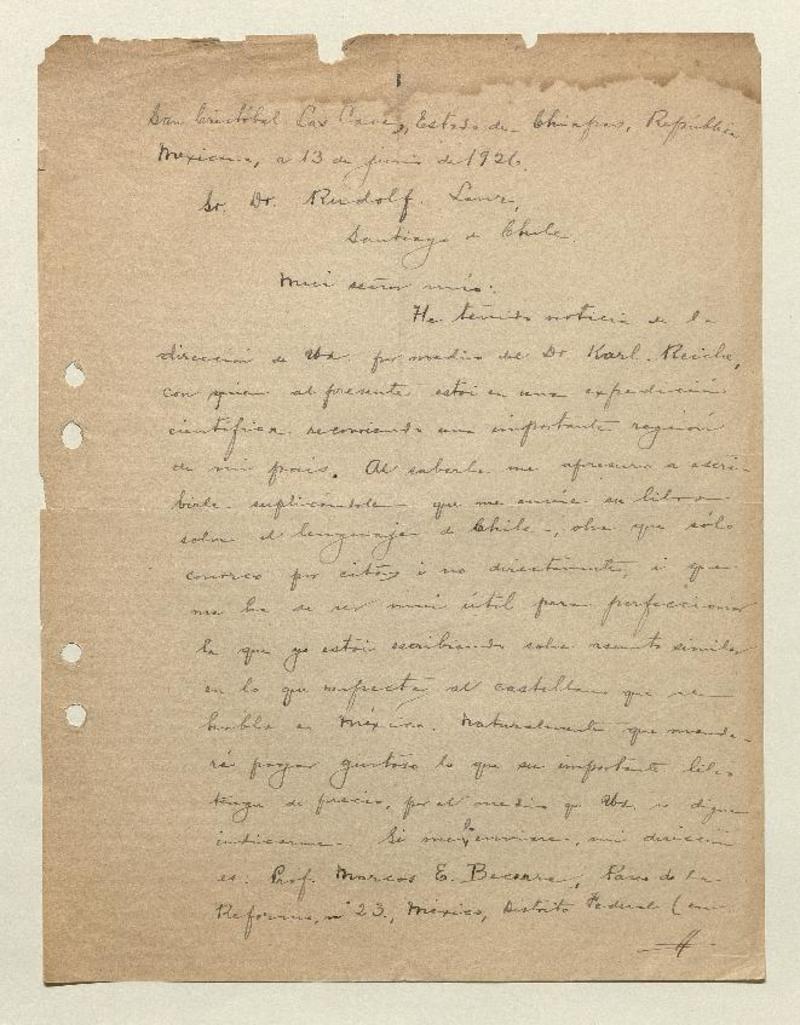 San Cristóbal Las Casas, Estado de Chiapas, República
Mexicana, a 13 de junio de 1926.
Sr. Dr. Rudolf Lenz,
Santiago de Chile.
Mui señor mío:
He tenido noticia de la
dirección de Ud. por medio del Dr. Karl Reiche,
con quien al presente estoi en una expedición
científica recorriendo una importante región
de mi país. Al saberla me apresuro a escri-
birle suplicándole que me envíe su libro
sobre el lenguaje de Chile, obra que sólo
conozco por citas i no directamente, i que
me ha de ser mui útil para perfeccionar
la que yo estoi escribiendo sobre asunto similar
en lo que respecta al castellano que se
habla en México. Naturalmente que manda-
ré pagar gustoso lo que su importante libro
tenga de precio, por el medio qe Ud. se digne
indicarme. Si me lo enviare, mi dirección
es: Prof. Marcos E. Becerra, Paseo de la
Reforma, nº 23, México, Distrito Federal (en